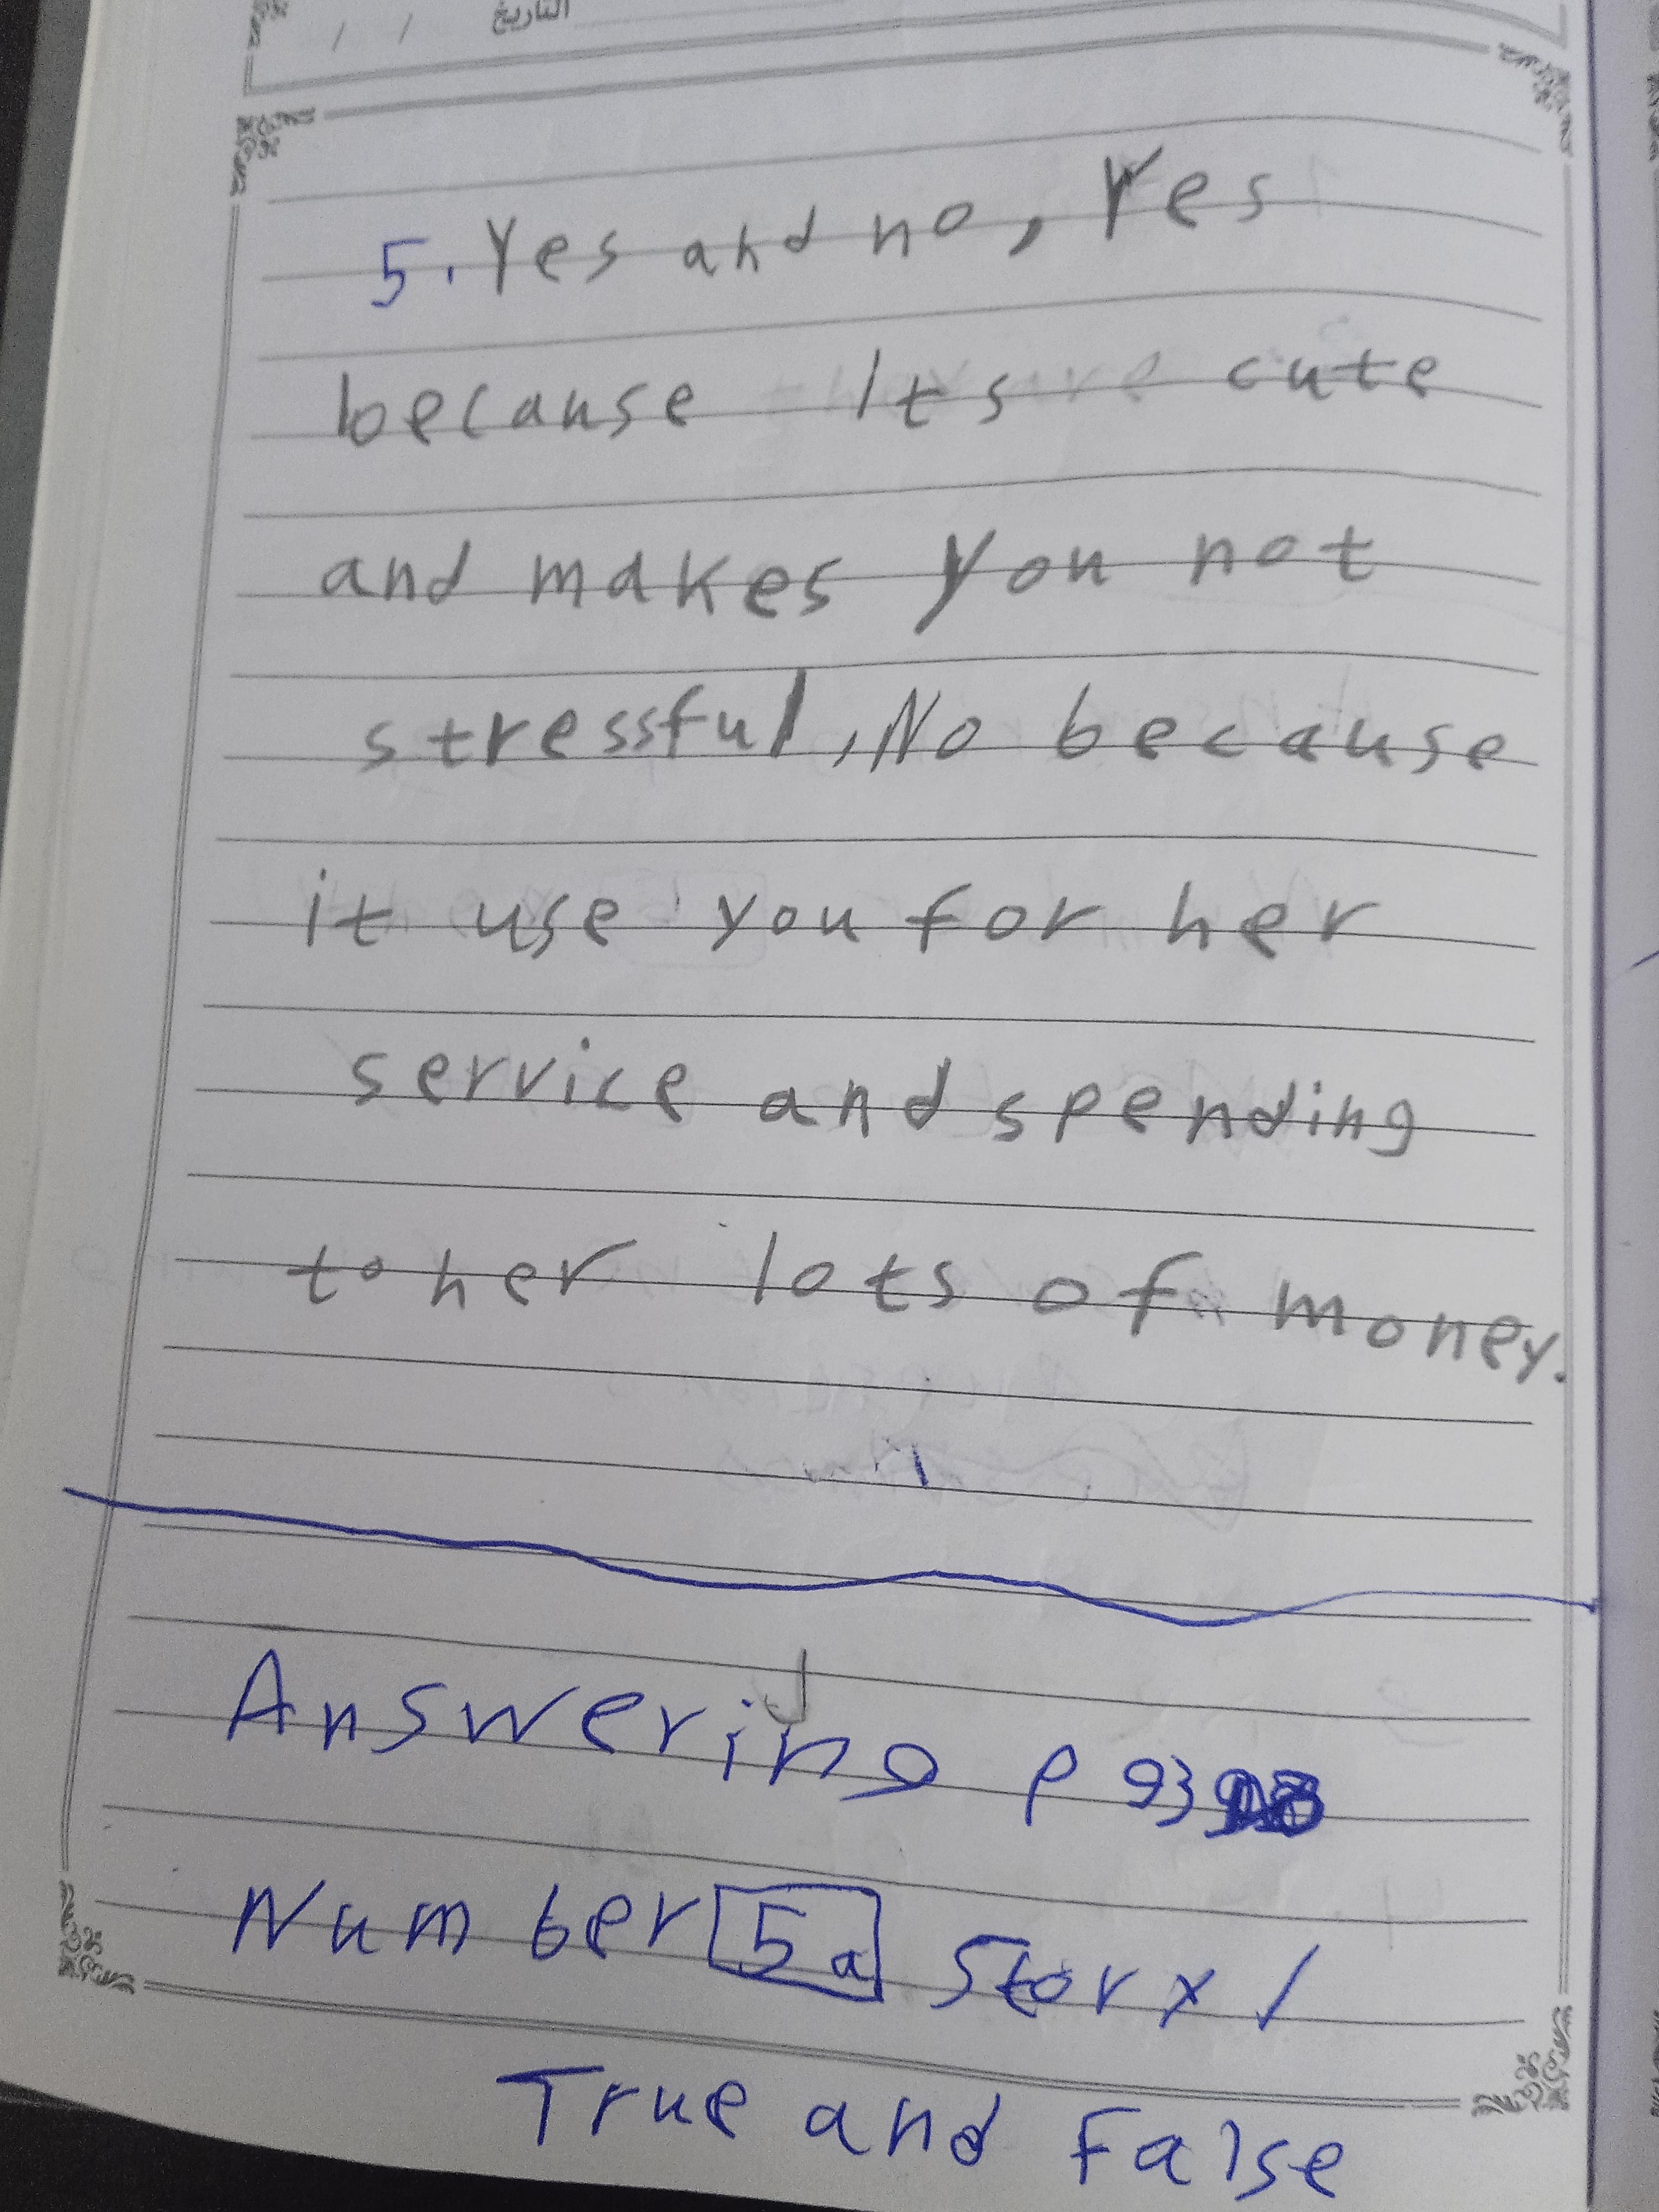 التاريخ / /
5. Yes and no, Yes
because Its cute
and makes you not
stressful, No because
it use you for her
service and spending
to her lots of money.
Answering P 93
Number 5a Story 1
True and False